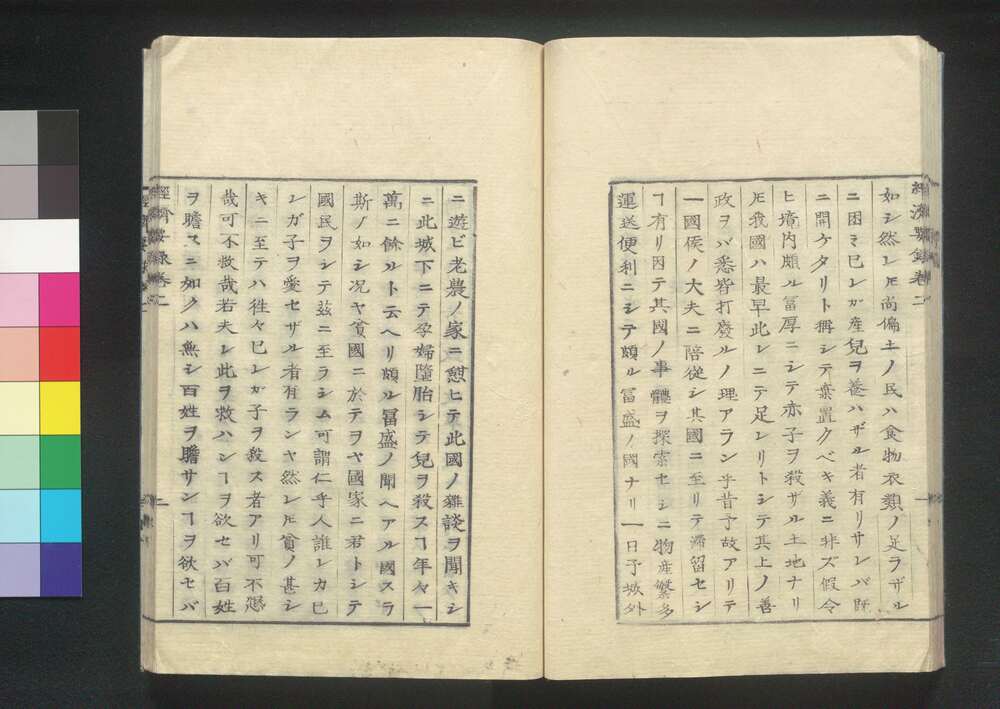 經濟要錄卷二
如シ然レ𪜈尚偏土ノ民ハ食物衣類ノ足ラザル
ニ困ミ已レガ産兒ヲ養ハザル者有リサレバ既
ニ開ケタリト稱シテ棄置クベキ義ニ非ズ假令
ヒ境内頗ル富厚ニシテ赤子ヲ殺ザル土地ナリ
𪜈我國ハ最早此レニテ足レリトシテ其上ノ善
政ヲバ悉皆打廢ルノ理アランヤ昔予故アリテ
一國侯ノ大夫ニ陪從シ其國ニ至リテ滯留セシ
ヿ有リ因テ其國ノ事體ヲ探索セシニ物産繁多
運送便利ニシテ頗ル富盛ノ國ナリ一日予城外
ニ遊ビ老農ノ家ニ憇ヒテ此國ノ雜談ヲ聞キシ
ニ此城下ニテ孕婦墮胎シテ兒ヲ殺スヿ年々一
萬ニ餘ルト云ヘリ頗ル富盛ノ聞ヘアル國スラ
斯ノ如シ况ヤ貧國ニ於テヲヤ國家ニ君トシテ
國民ヲシテ茲ニ至ラシム可謂仁乎人誰レカ已
レガ子ヲ愛セザル者有ランヤ然レ𪜈貧ノ甚シ
キニ至テハ徃々已レガ子ヲ殺ス者アリ可不愍
哉可不救哉若夫レ此ヲ救ハンヿヲ欲セバ百姓
ヲ贍スニ如クハ無シ百姓ヲ贍サンヿヲ欲セバ
經濟要錄卷二
二